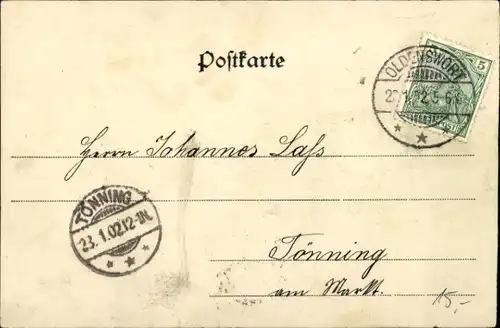 Postkarte
OLDENSWORT
5
Herrn Johannes Lass
TÖNNING
23.1.02.12-1N.
Tönning
am Markt.
15,-